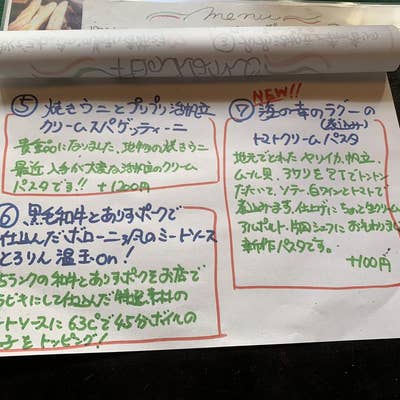 menu
⑤ 焼きウニとプリプリ活帆立
クリームスパゲッティーニ
貴重品になりました、地物の焼きウニ
最近 入手が大変な活帆立のクリーム
パスタです!! +1200円
⑥ 黒毛和牛とありすポークで
仕込んだボローニャ風のミートソース
とろりん温玉on!
5ランクの和牛とありすポークをお店で
ビキにして仕込んだ
ートソースに 63℃で45分ボイルの
子をトッピング!
NEW!!
⑦ 海の幸のラグーの
(煮込み)
トマトクリームパスタ
地元でとれたヤリイカ、帆立、
ムール貝、
たたいて、ソテー白ワインとトマトで
煮込みます。仕上げにちょっと生クリーム
新作パスタです。
+100円